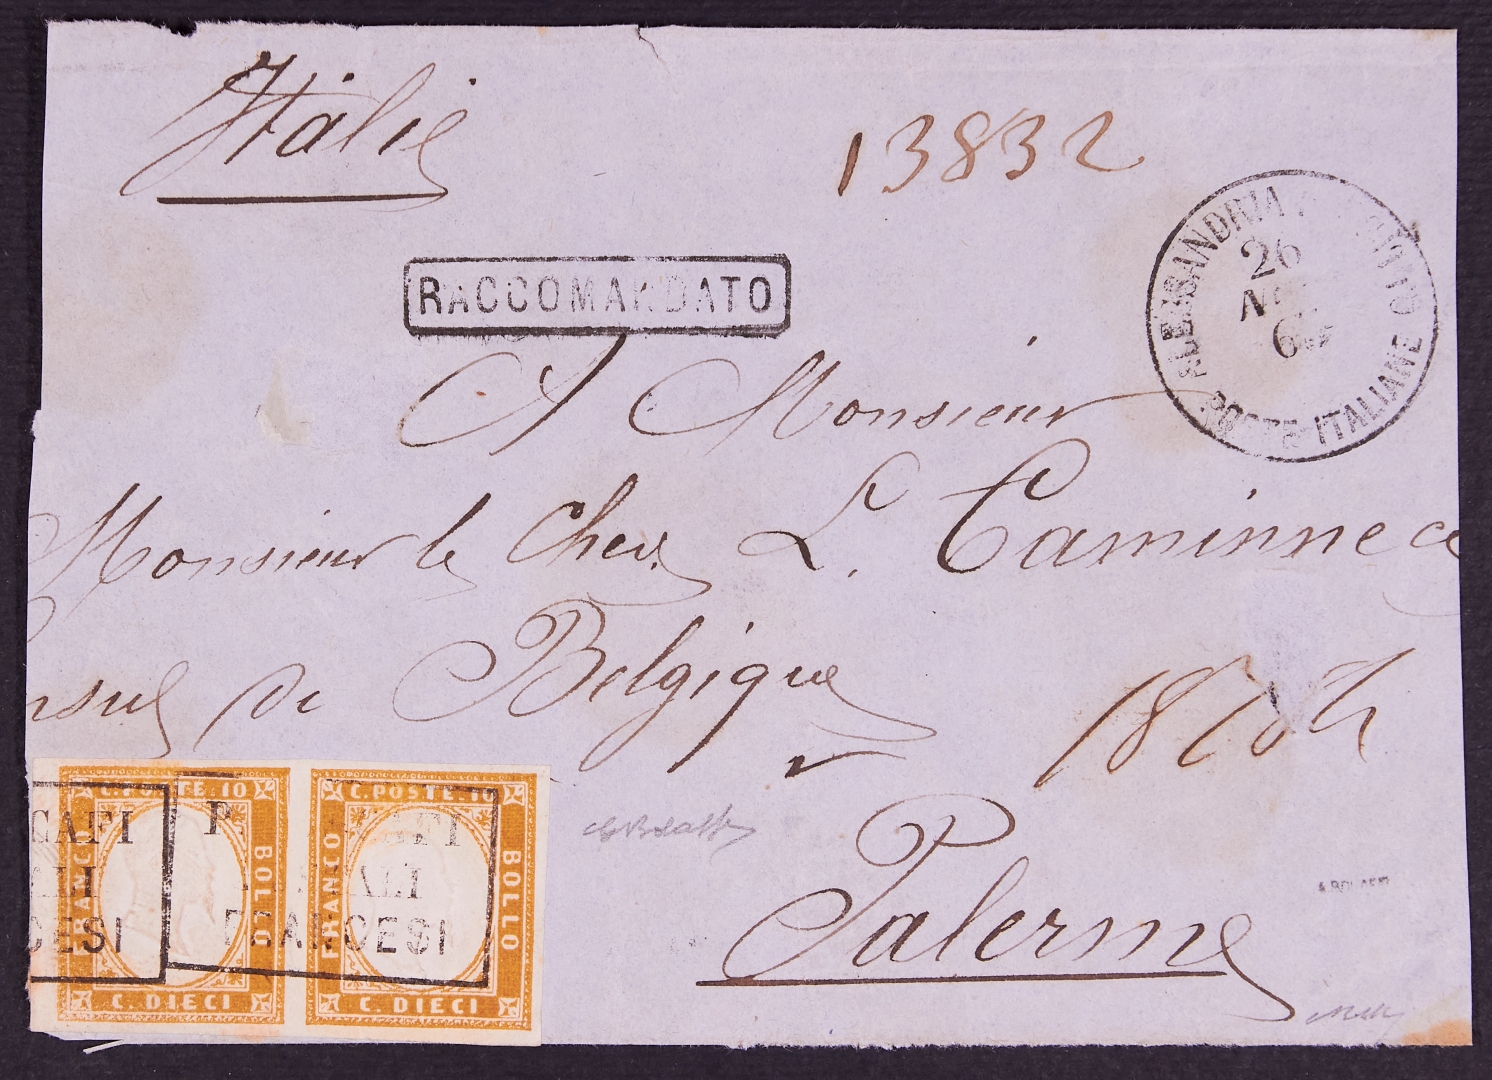 Italie
13832
RACCOMANDATO
ALESSANDRIA
26
POSTE ITALIANE
A Monsieur
Monsieur le Chev. L. Caminnec
nsul de Belgique
Palerme
C. POSTE. 10
FRANCO
BOLLO
C. DIECI
C. POSTE. 10
FRANCO
BOLLO
C. DIECI
CAFI
ALI
CESI
P CAFI
ALI
FRANCESI